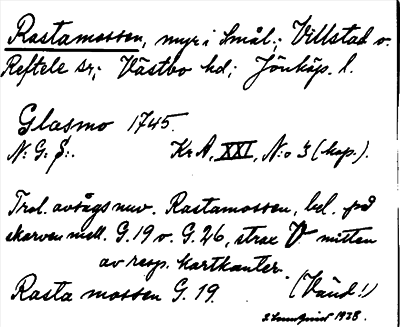 Rastamossen, myr i Smål.; Villstad o.
Reftele sr; Västbo hd; Jönköp. l.
Glasmo 1745.
N: G: S:. Kr A, XXI, N:o 3 (kop.).
Trol. avsågs nuv. Rastamossen, bel. på
skarven mell. G. 19 o. G. 26, strax V mitten
av resp. kartkanter.
Rasta mossen G. 19. (Vänd!)
1938.